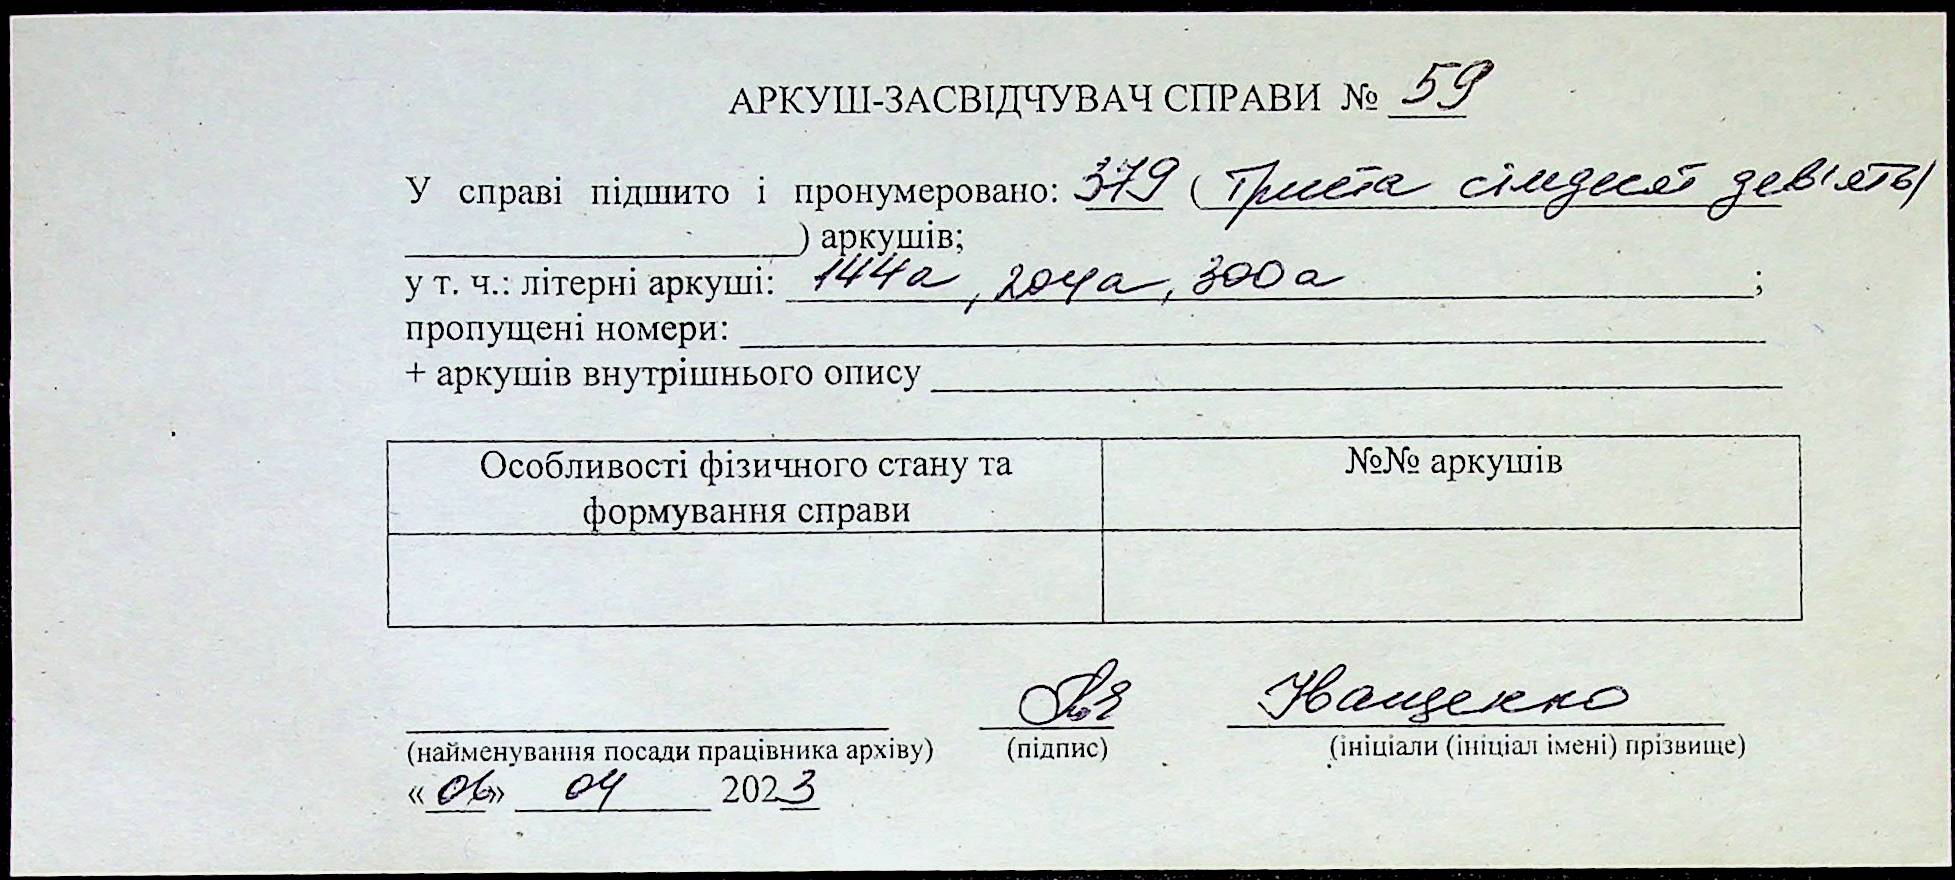 АРКУШ-ЗАСВІДЧУВАЧ СПРАВИ № 59
У справі підшито і пронумеровано: 379 (Триста сімдесят дев'ять)
) аркушів;
у т. ч.: літерні аркуші: 144а, 204а, 300а ;
пропущені номери:
+ аркушів внутрішнього опису
Особливості фізичного стану та формування справи
№№ аркушів
Іващенко
(найменування посади працівника архіву) (підпис) (ініціали (ініціал імені) прізвище)
«06» 04 2023